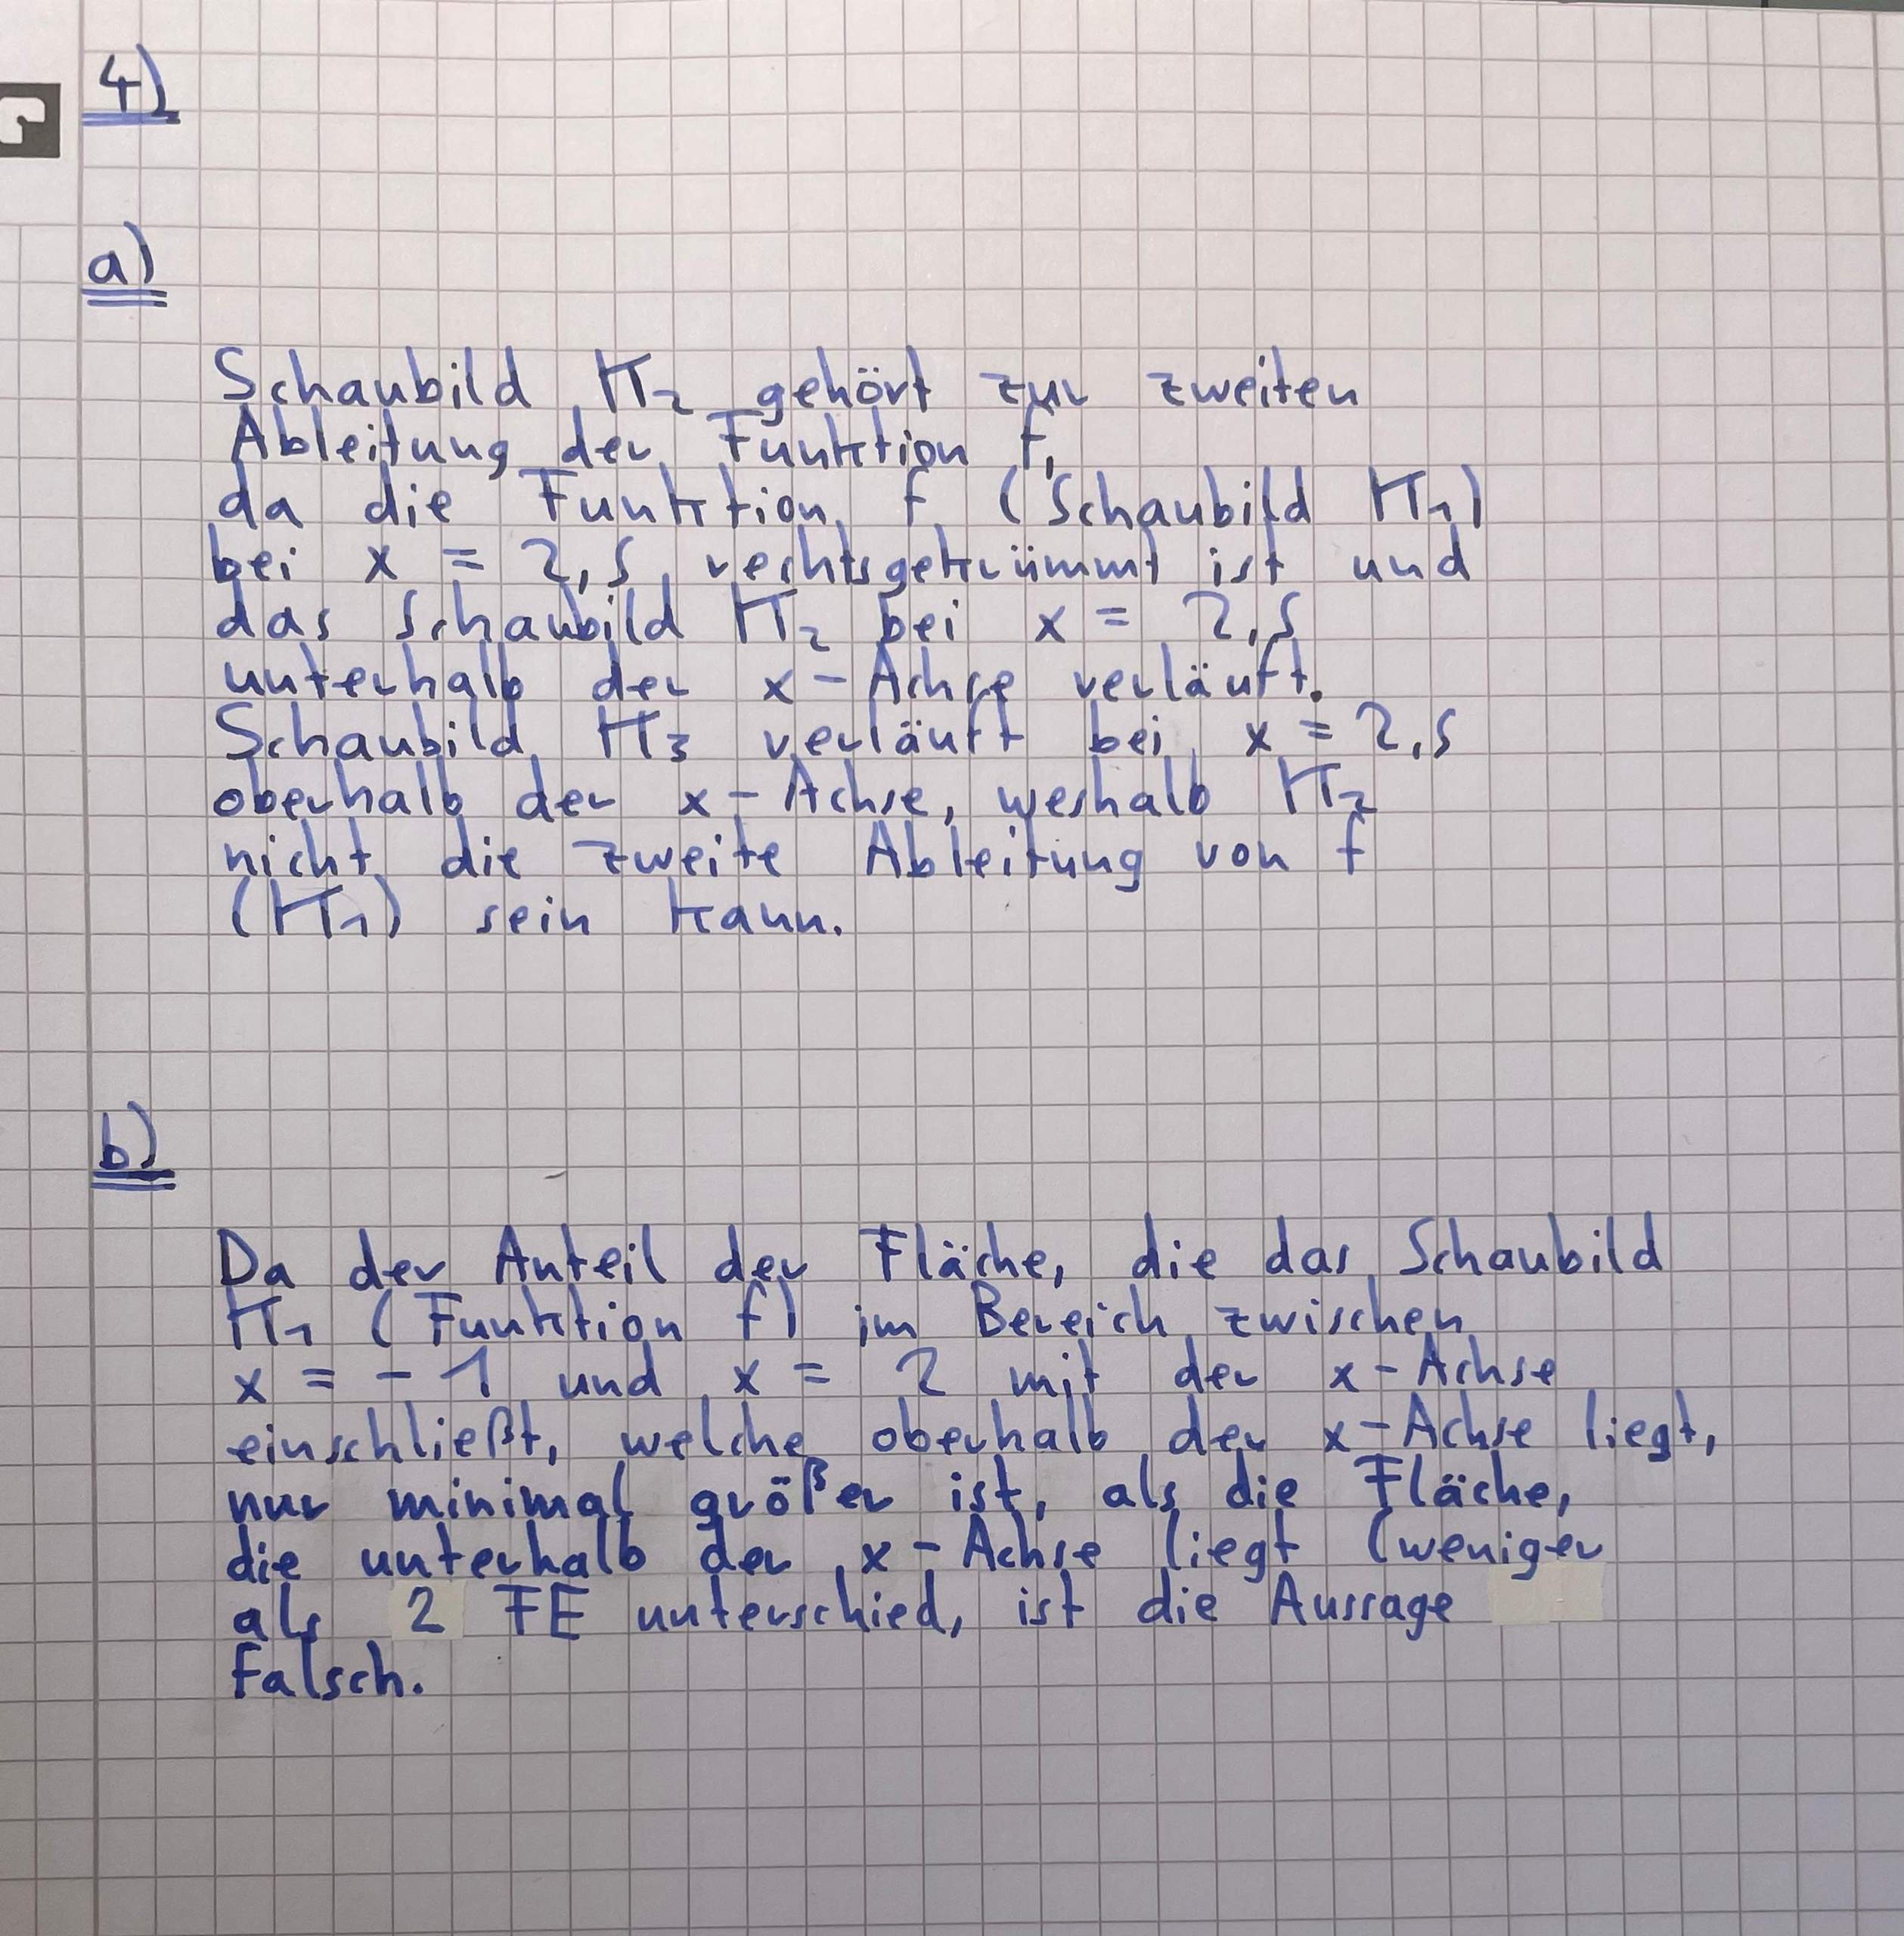 4)
a)
Schaubild K₂ gehört zur zweiten
Ableitung der Funktion f,
da die Funktion f (Schaubild K₁)
bei x = 2,5 rechtsgekrümmt ist und
das Schaubild K₂ bei x = 2,5
unterhalb der x-Achse verläuft.
Schaubild K₃ verläuft bei x = 2,5
oberhalb der x-Achse, weshalb K₂
nicht die zweite Ableitung von f
(K₁) sein kann.
b)
Da der Anteil der Fläche, die das Schaubild
K₁ (Funktion f) im Bereich zwischen
x = -1 und x = 2 mit der x-Achse
einschließt, welche oberhalb der x-Achse liegt,
nur minimal größer ist, als die Fläche,
die unterhalb der x-Achse liegt (weniger
als 2 FE unterschied, ist die Aussage
falsch.